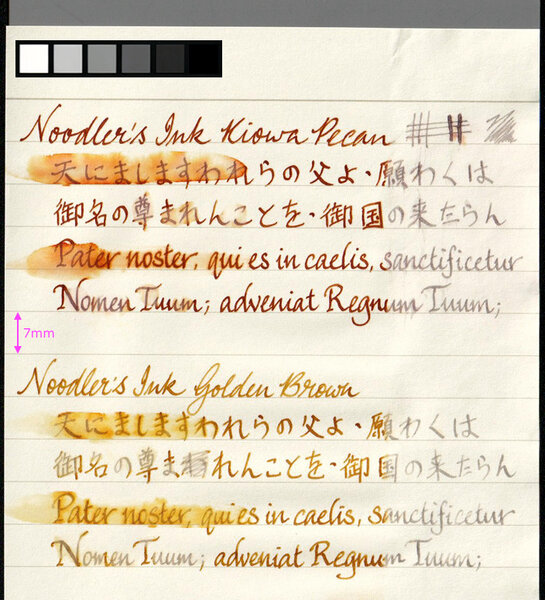 Noodler's Ink Kiowa Pecan
天にましますわれらの父よ・願わくは
御名の尊まれんことを・御国の来たらん
Pater noster, qui es in caelis, sanctificetur
Nomen Tuum; adveniat Regnum Tuum;
7mm
Noodler's Ink Golden Brown
天にましますわれらの父よ・願わくは
御名の尊まれんことを・御国の来たらん
Pater noster, qui es in caelis, sanctificetur
Nomen Tuum; adveniat Regnum Tuum;